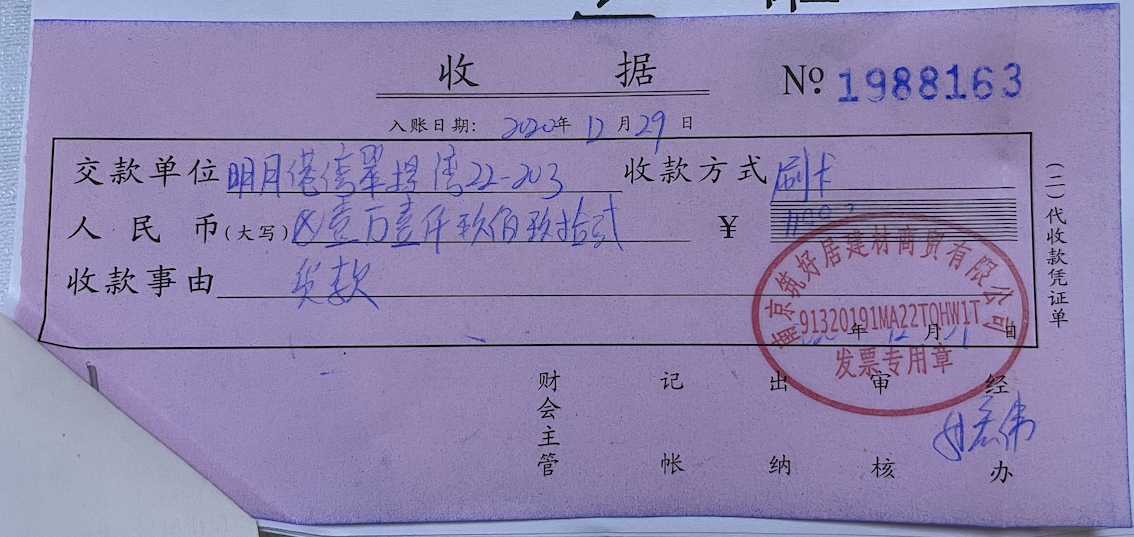 收据
№ 1988163
入账日期: 2020年 12月29日
交款单位 明月港信翠提湾22-203 收款方式 刷卡
人民币(大写) 壹万壹仟玖佰玖拾贰 ¥
收款事由 货款
年 12 月 日
南京筑好居建材商贸有限公司
91320191MA22TQHW1T
发票专用章
(二)代收款凭证单
财会主管 记帐 出纳 审核 经办